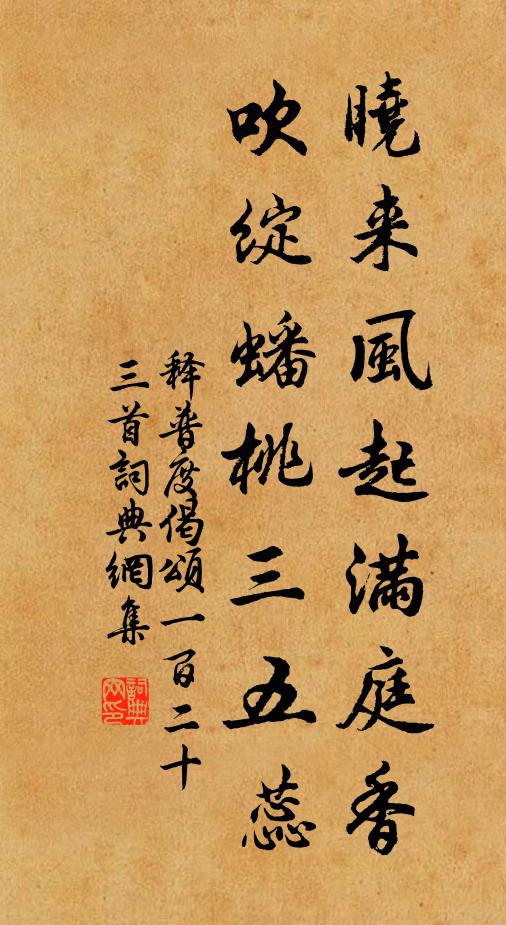 曉来風起滿庭香
吹綻蟠桃三五蕊
释普度偈頌一百二十
三首詞典網集
詞典网印